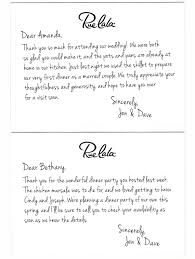 Rue La La
Dear Amanda,
Thank you so much for attending our wedding! We were both
so glad you could make it, and the pots and pans are already at
home in our kitchen. Just last night we used the skillet to prepare
our very first dinner as a married couple. We truly appreciate your
thoughtfulness and generosity, and hope to have you over
for a visit soon.
Sincerely,
Jen & Dave
Rue La La
Dear Bethany,
Thank you for the wonderful dinner party you hosted last week.
The chicken marsala was to die for, and we loved getting to know
Cindy and Joseph. We're planning a dinner party of our own this
spring, and I'll be sure to call you to check your availability as
soon as we know the details.
Sincerely,
Jen & Dave